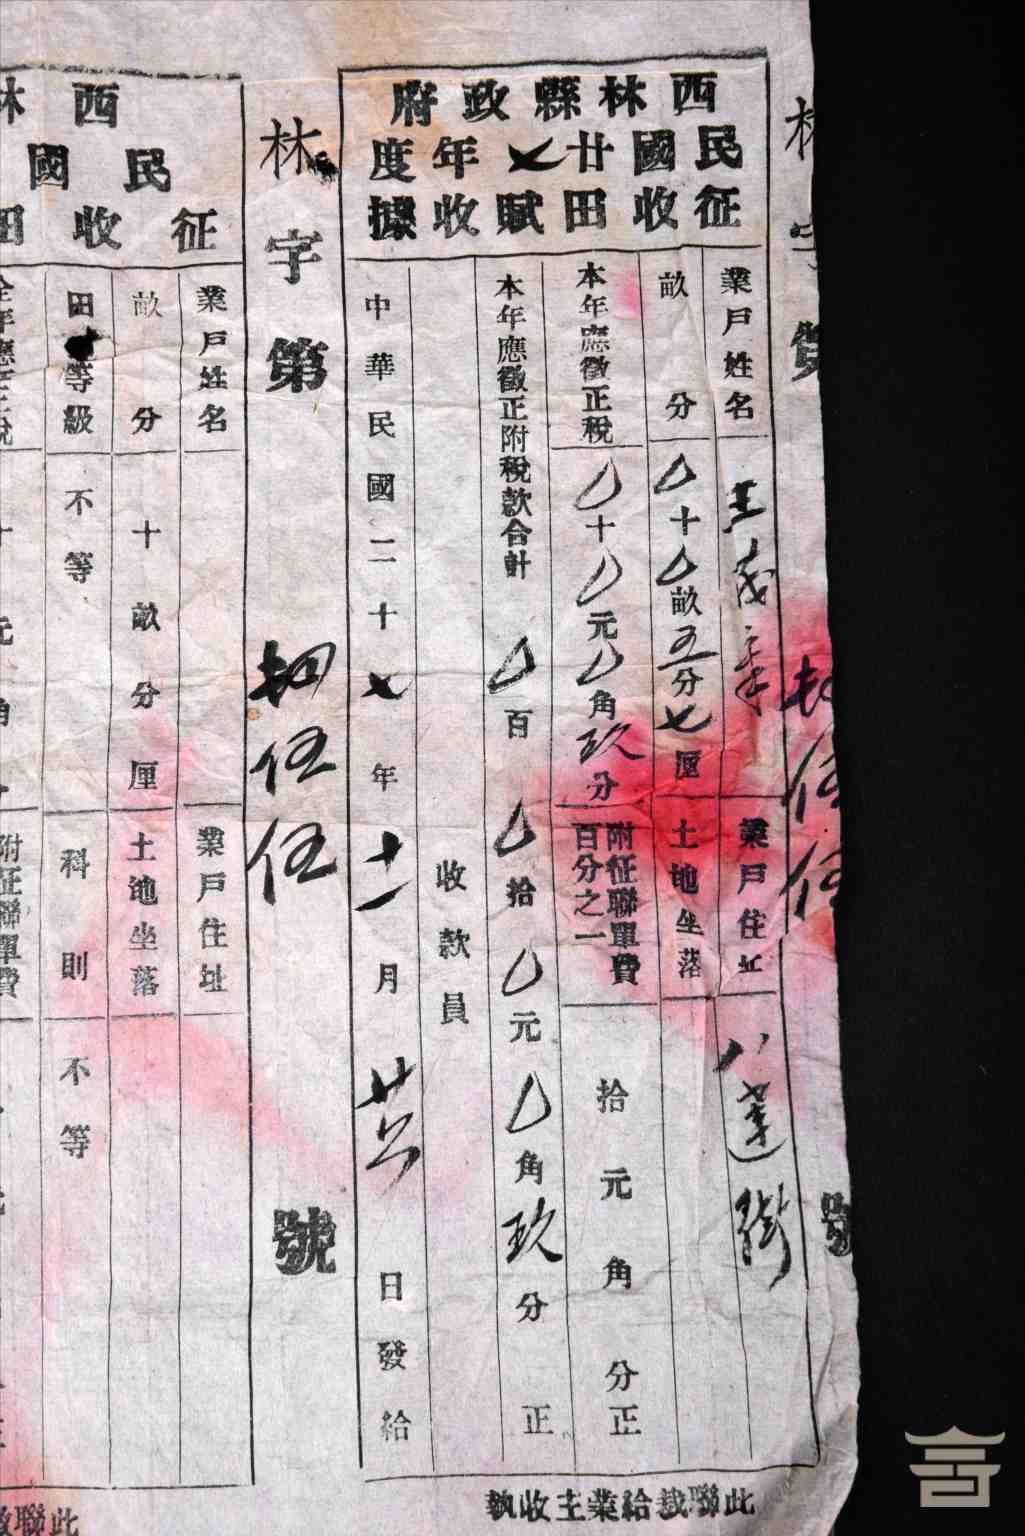 西林縣政府
民國廿七年度
征收田賦收據
業戶姓名
王茂章
業戶住址
八達街
畝分
〇十〇畝五分七厘
土地坐落
本年應徵正稅
〇十〇元〇角玖分
附征聯單費百分之一
拾元角分正
本年應徵正附稅款合計
〇百〇拾〇元〇角玖分正
收款員
中華民國二十七年十一月廿六日發給
此聯裁給業主收執
林字第
伍伍
號
西林
民國
征收田
業戶姓名
業戶住址
畝分
十畝分厘
土地坐落
田等級
不等
科則
不等
全年應征正稅
十元角
附征聯單費
此聯